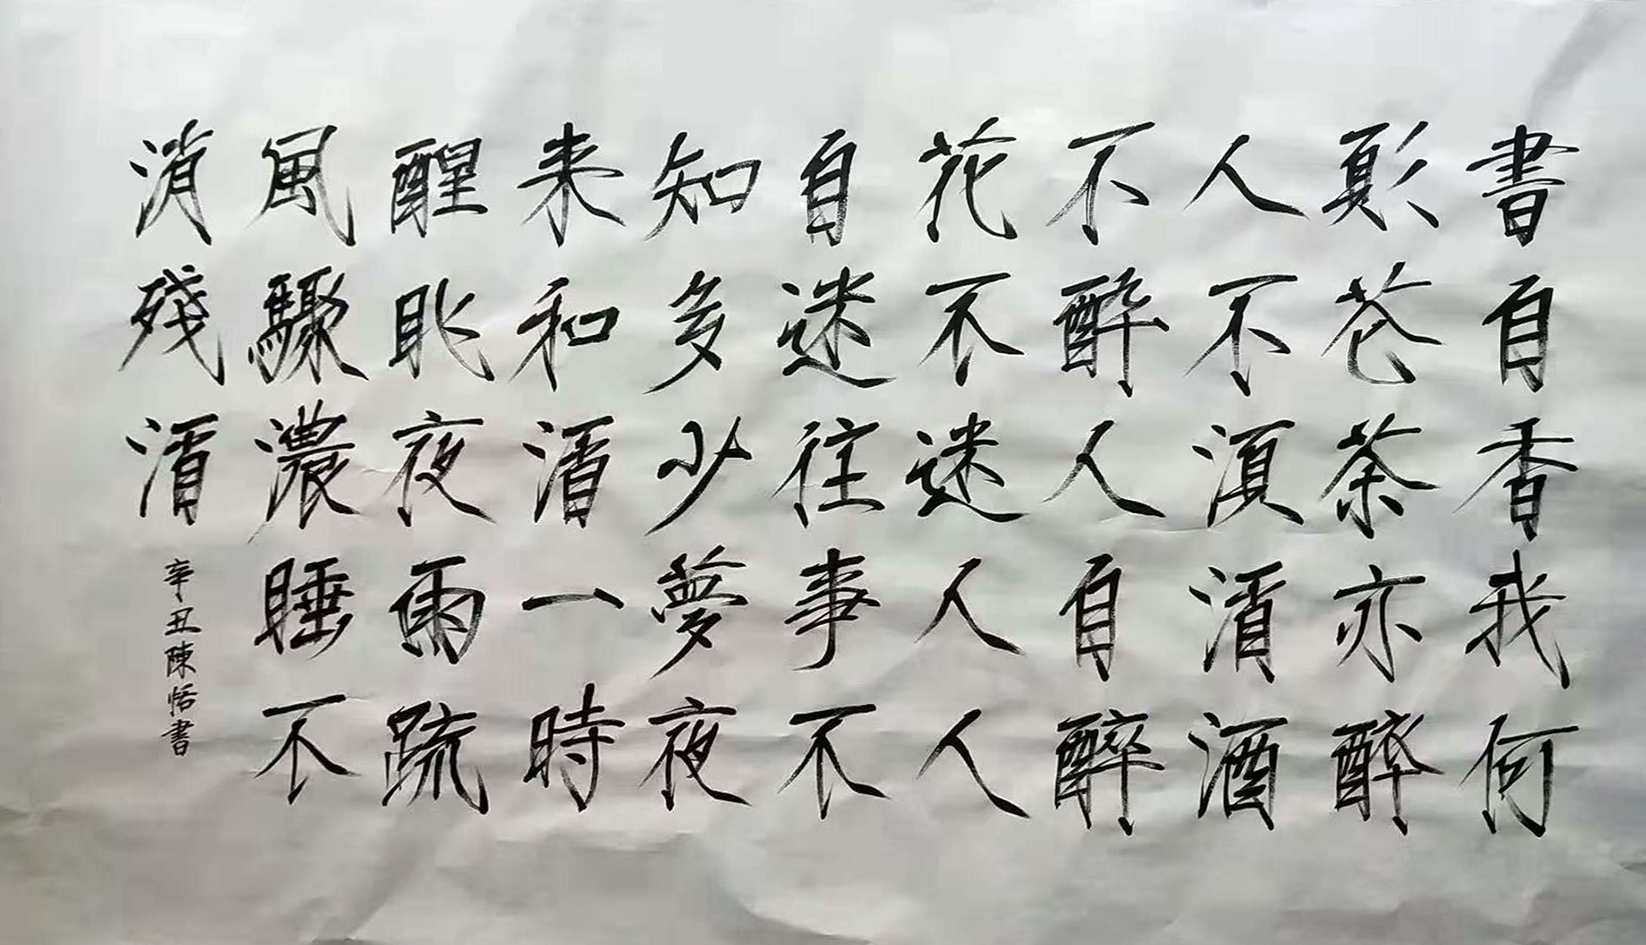 書自香我何
須花茶亦醉
人不湏酒酒
不醉人自醉
花不迷人人
自迷往事不
知多少夢夜
来和酒一時
醒夜雨疏
風驟濃睡不
消殘酒
辛丑陳悟書